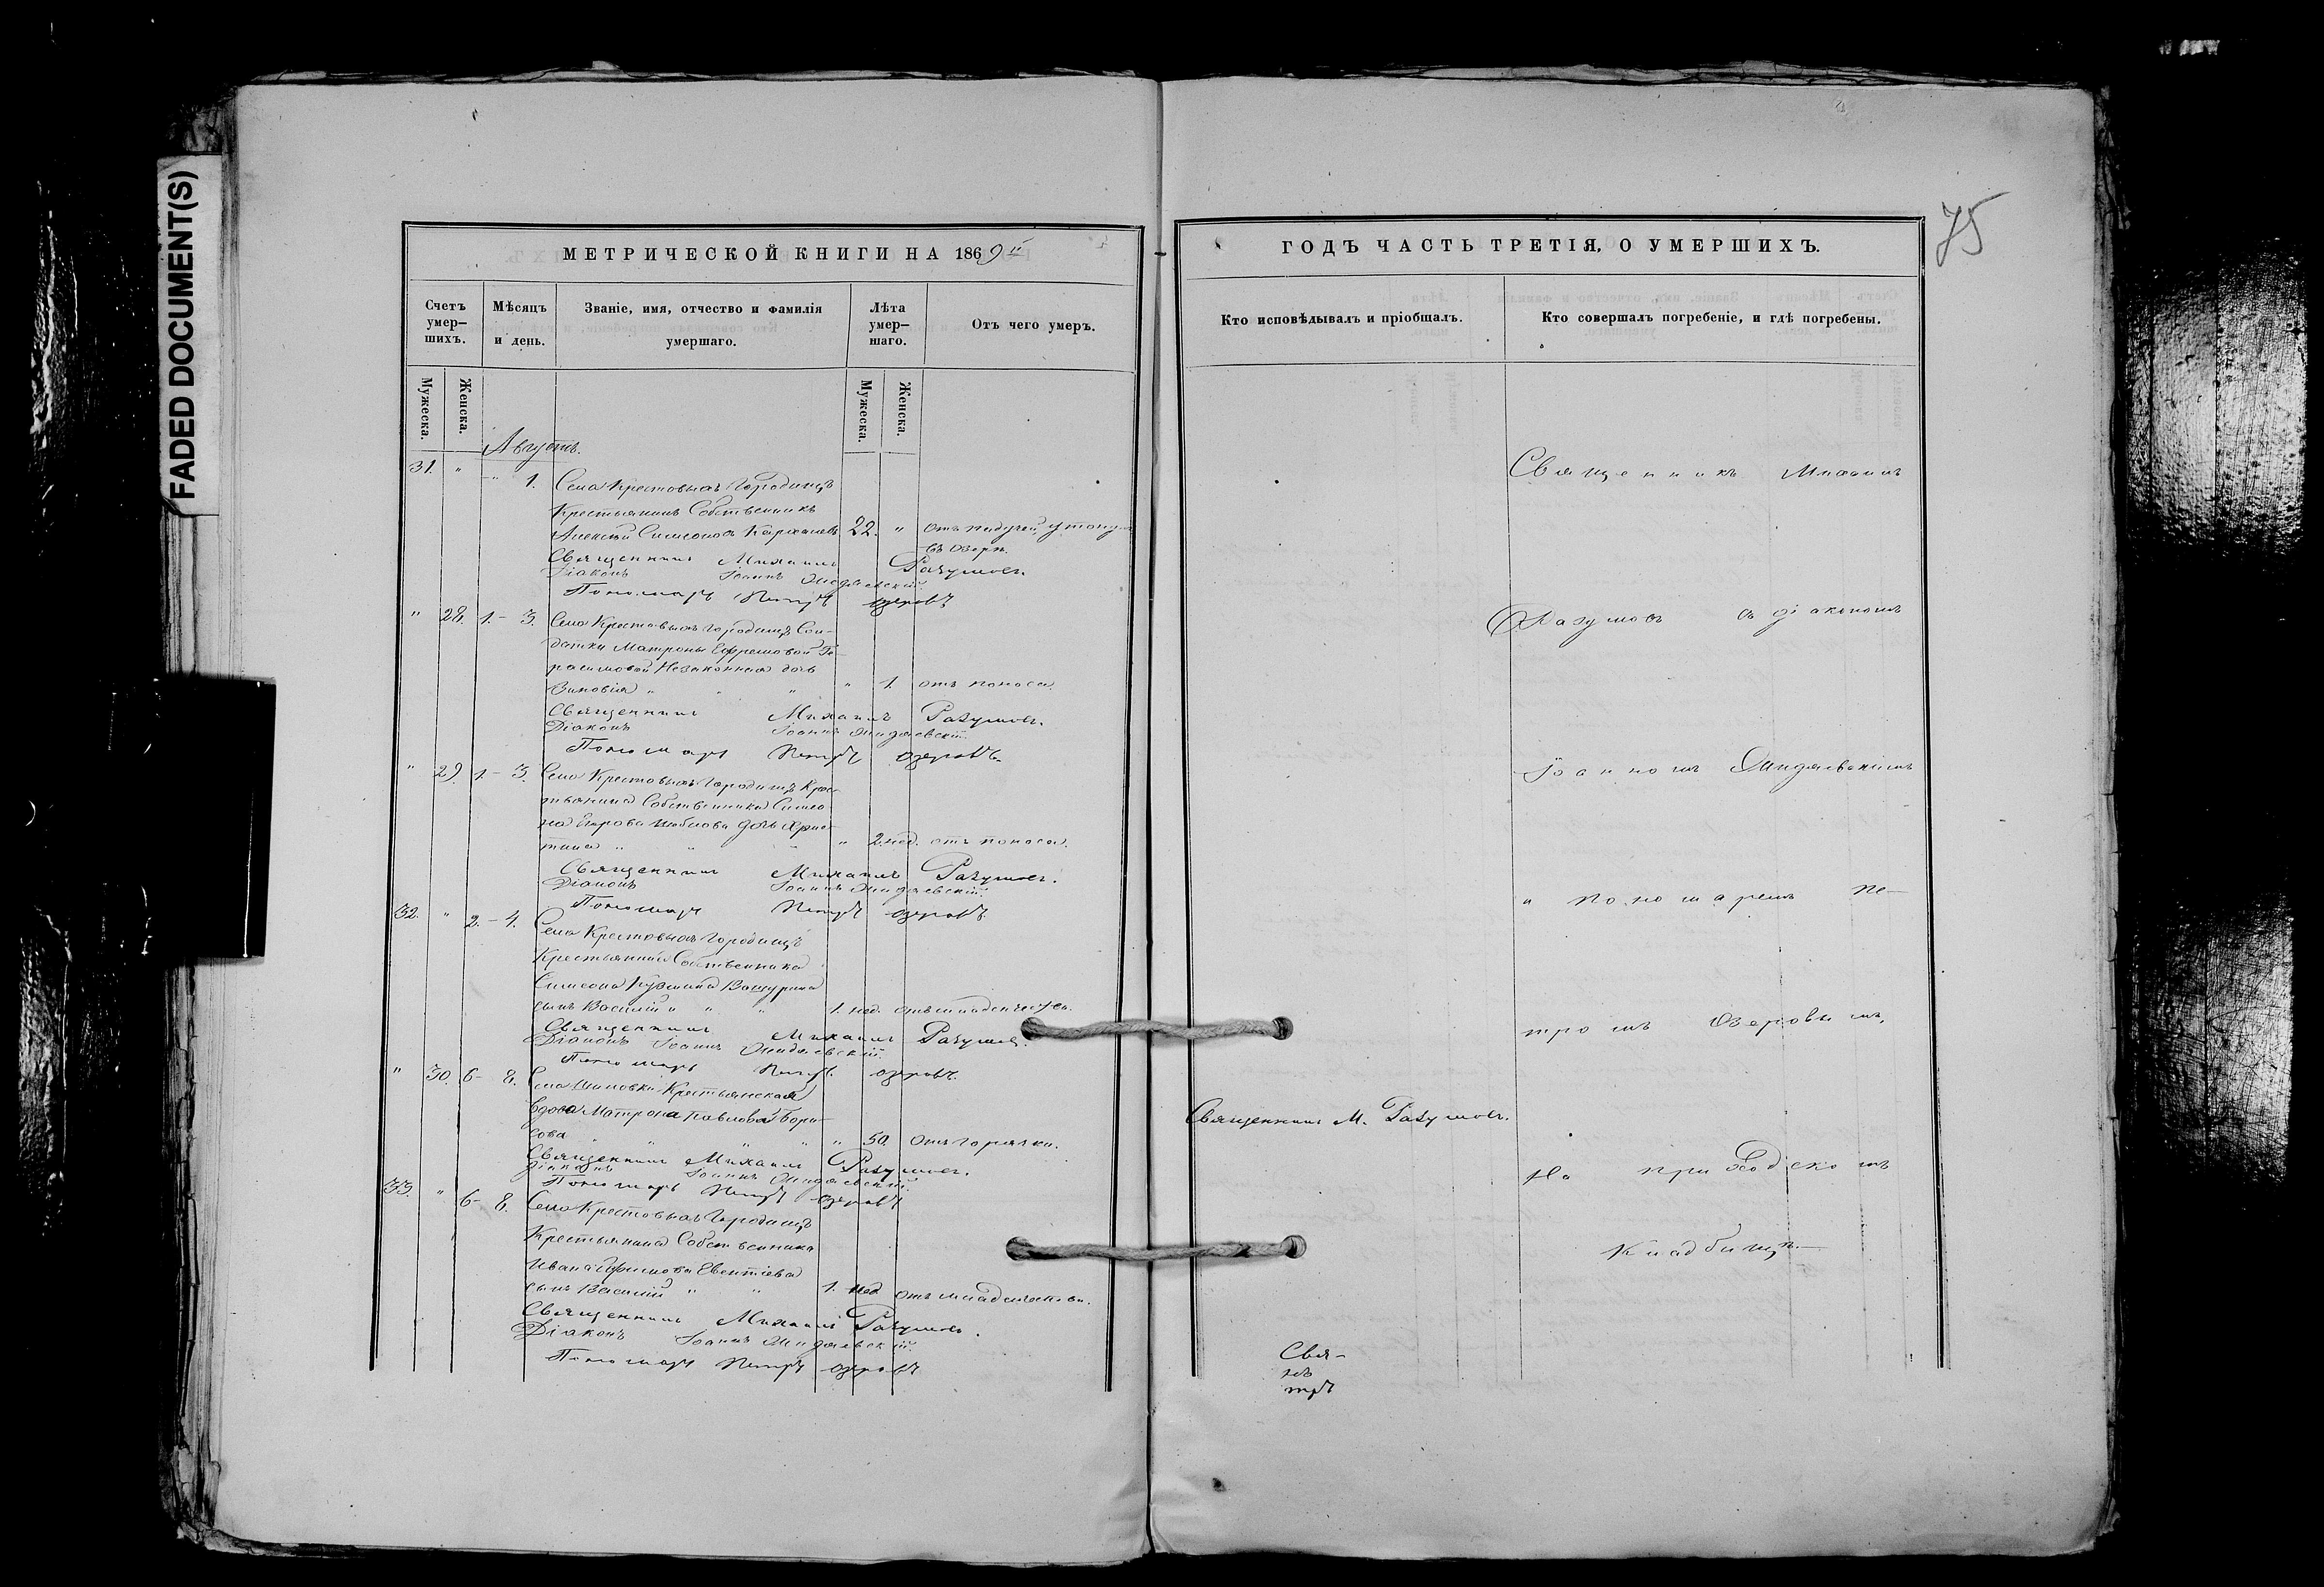 FADED DOCUMENT(S)
МЕТРИЧЕСКОЙ КНИГИ НА 1869й
Счетъ умер-шихъ.
Мѣсяцъ и день.
Званіе, имя, отчество и фамилія умершаго.
Лѣта умер-шаго.
Отъ чего умеръ.
Мужеска.
Женска.
Мужеска.
Женска.
Августъ.
31. " " 1. Села Крестовыхъ Городищъ
Крестьянинъ Собственникъ
Алексѣй Симеоновъ 22. " отъ падучей, утонулъ
въ озерѣ.
Священникъ Михаилъ Разумовъ.
Діаконъ Іоаннъ
Пономарь Петръ Озеровъ
" 28. 1.- 3. Села Крестовыхъ Городищъ Сол-
датки Матроны Ефремовой Ге-
расимовой Незаконная дочь
Зиновія " " " " 1. отъ поноса.
Священникъ Михаилъ Разумовъ.
Діаконъ Іоаннъ
Пономарь Петръ Озеровъ.
" 29. 1.- 3. Села Крестовыхъ Городищъ Крес-
тьянина Собственника Симео-
на дочь Хрис-
тина " " " " 2. нед. отъ поноса.
Священникъ Михаилъ Разумовъ.
Діаконъ Іоаннъ
Пономарь Петръ Озеровъ
32. " 2.- 4. Села Крестовыхъ Городищъ
Крестьянина Собственника
Симеона Кузмина Вашурина
сынъ Василій " " " 1. нед. отъ младенчества.
Священникъ Михаилъ Разумовъ.
Діаконъ Іоаннъ
Пономарь Петръ Озеровъ.
" 30. 6- 8. Села Крестьянская
вдова Матрона Павлова Бори-
сова " " " " " 50. Отъ горячки.
Священникъ Михаилъ Разумовъ.
Діаконъ Іоаннъ
Пономарь Петръ Озеровъ
33. " 6- 8. Села Крестовыхъ Городищъ
Крестьянина Собственника
Ивана
сынъ Василій " " 1. нед отъ младенчества.
Священникъ Михаилъ Разумовъ.
Діаконъ Іоаннъ
Пономарь Петръ Озеровъ
75
ГОДЪ ЧАСТЬ ТРЕТІЯ, О УМЕРШИХЪ.
Кто исповѣдывалъ и пріобщалъ.
Кто совершалъ погребеніе, и гдѣ погребены.
Священникъ Михаилъ
Разумовъ съ діакономъ
Іоанномъ
и пономаремъ Пе-
тромъ Озеровымъ,
Священникъ М. Разумовъ.
на приходскомъ
кладбищѣ.
Свя-
тръ